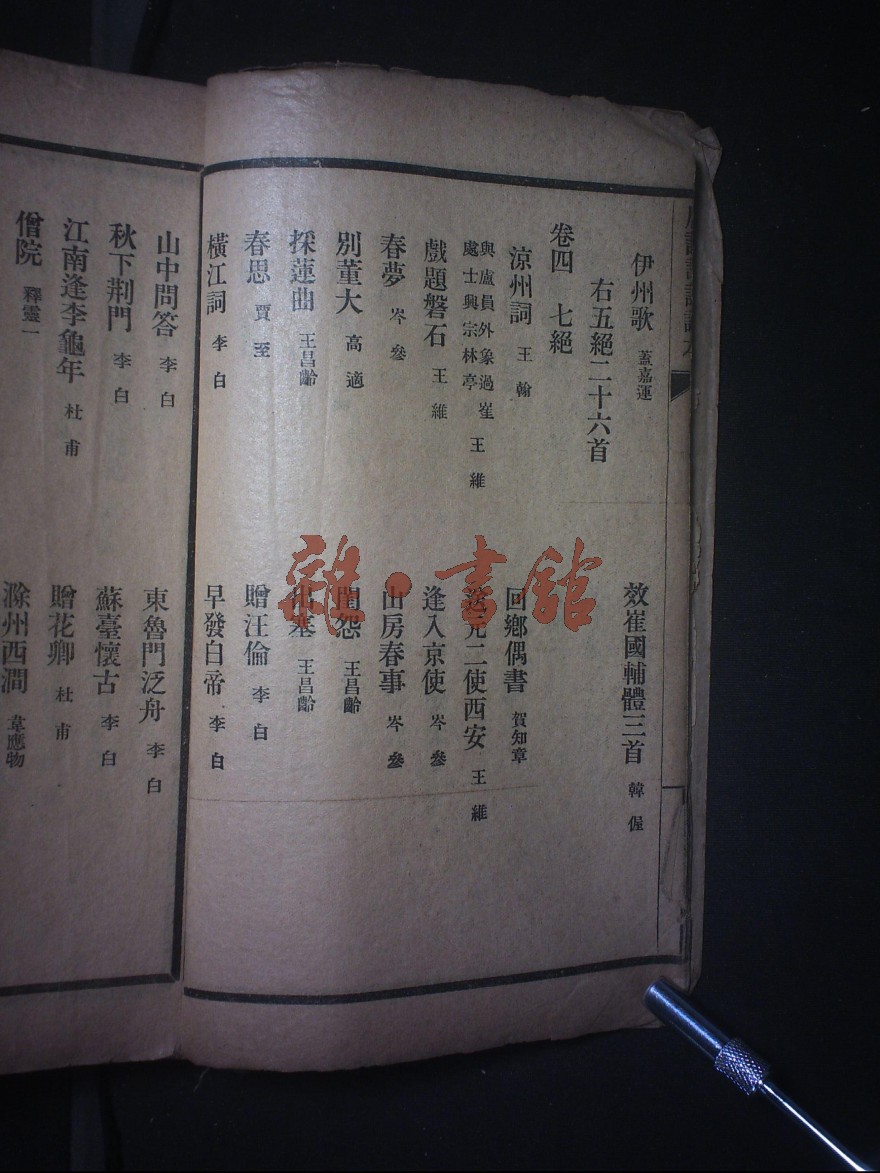 伊州歌 蓋嘉運
效崔國輔體三首 韓偓
右五絕二十六首
卷四 七絕
涼州詞 王翰
回鄉偶書 賀知章
與盧員外象過崔處士興宗林亭 王維
送元二使西安 王維
戲題磐石 王維
逢入京使 岑參
春夢 岑參
山房春事 岑參
別董大 高適
閨怨 王昌齡
採蓮曲 王昌齡
出塞 王昌齡
春思 賈至
贈汪倫 李白
橫江詞 李白
早發白帝 李白
山中問答 李白
東魯門泛舟 李白
秋下荆門 李白
蘇臺懷古 李白
江南逢李龜年 杜甫
贈花卿 杜甫
僧院 釋靈一
滁州西澗 韋應物
雜·書館